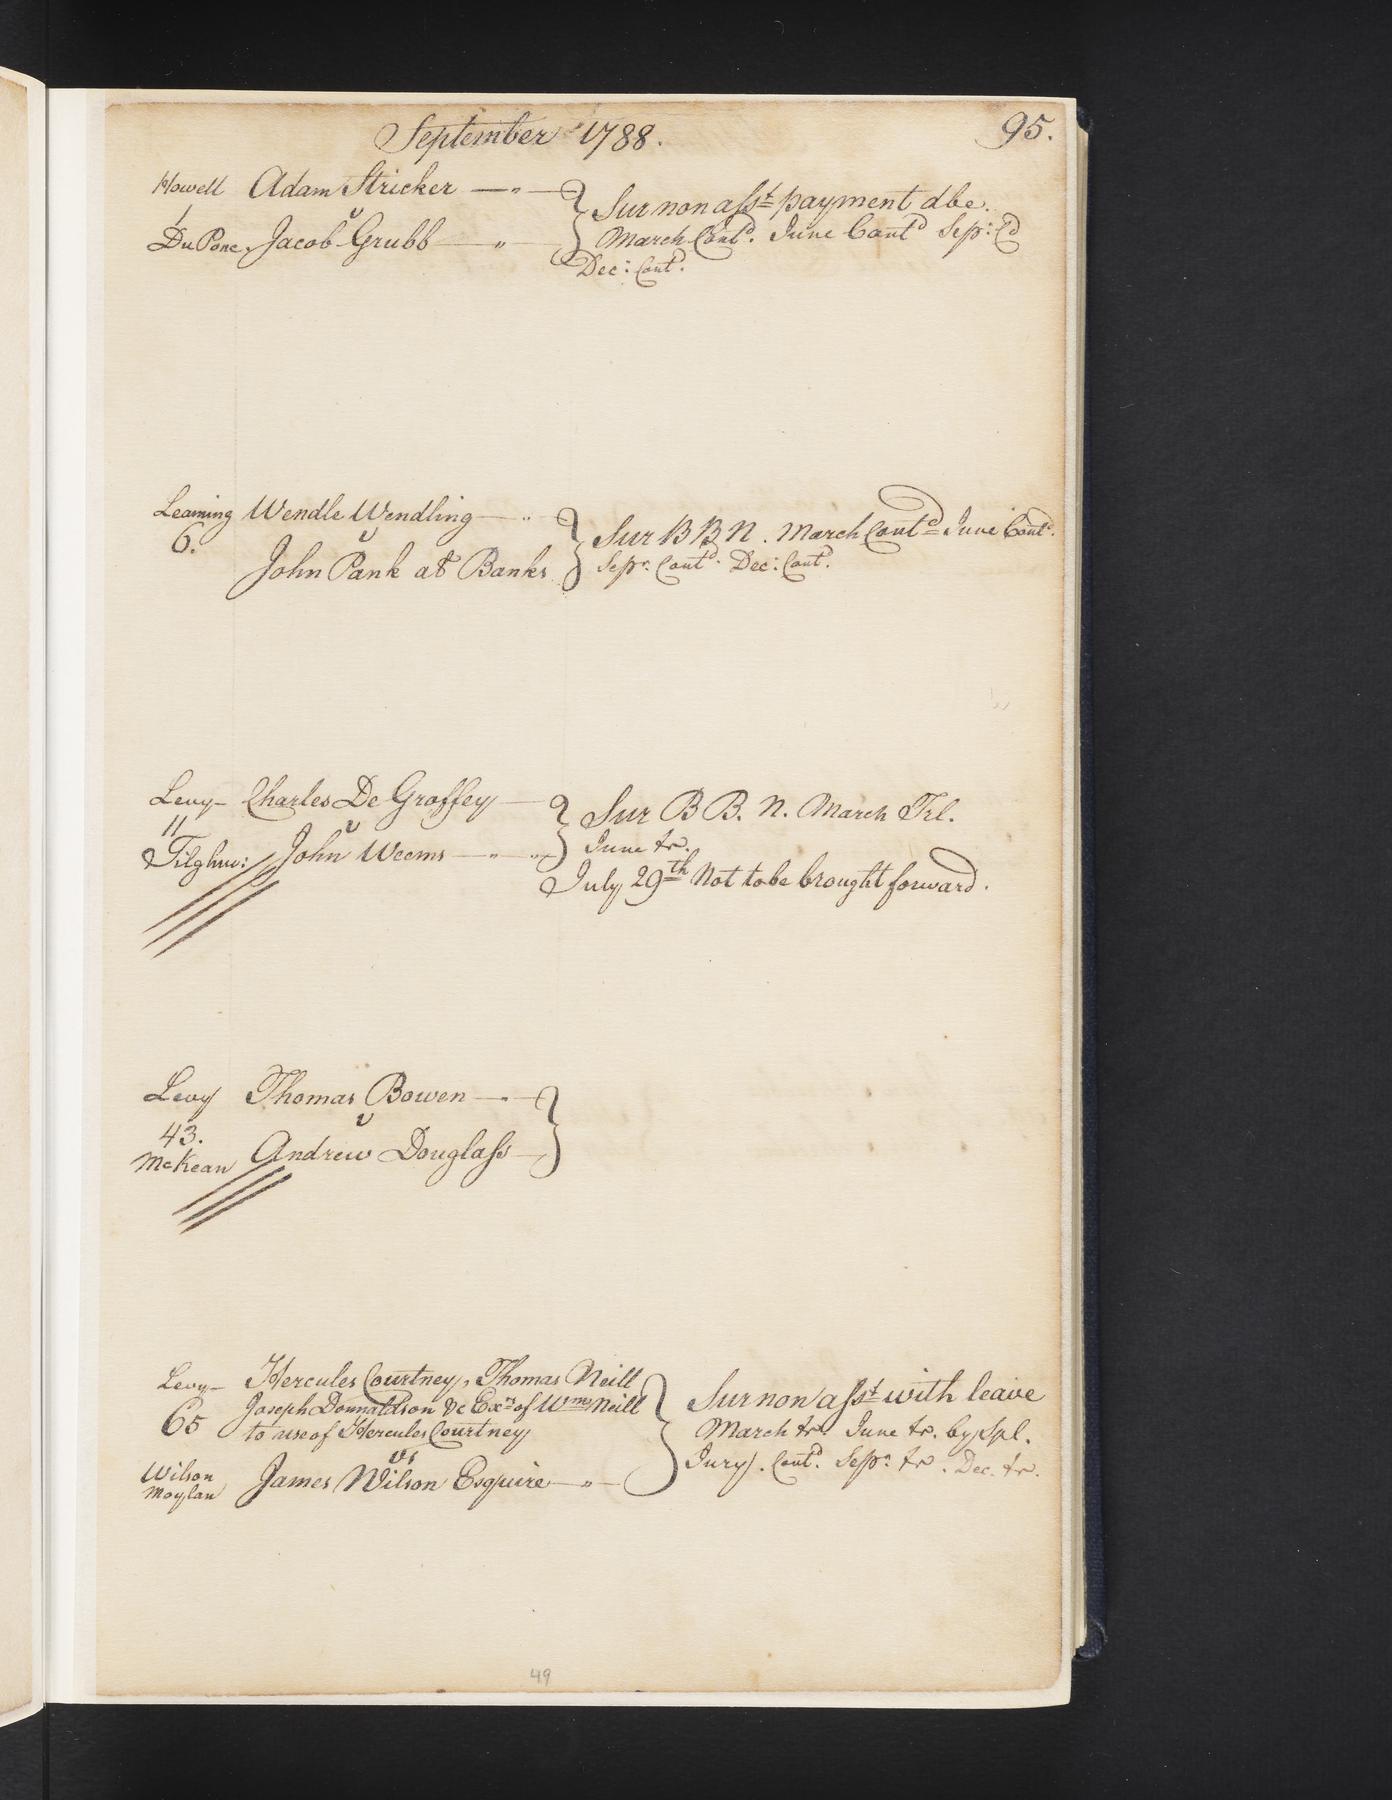 September 1788.
95.
Howell Adam Stricker
1 v
DuPone Jacob Grubb
Sur non asst payment dbe.
March Contd. June Contd Sep: Cd
Dec: Contd.
Leaming Wendle Wendling
6. v
John Pank at Banks
Sur B B N. March Contd June Contd.
Sepr. Contd. Dec: Contd.
Levy Charles De Groffey
11 v
Tilghm: John Weems
Sur B B. N. March Trl.
June tr.
July 29th Not to be brought forward.
Levy Thomas Bowen
43. v
McKean Andrew Douglass
Levy Hercules Courtney, Thomas Neill
65 Joseph Donnaldson &c Exrs of Wm Neill
to use of Hercules Courtney
vs
Wilson James Wilson Esquire
Moylan
Sur non asst with leave
March tr. June tr. by Spl.
Jury. Contd. Sepr. tr. Dec. tr.
49